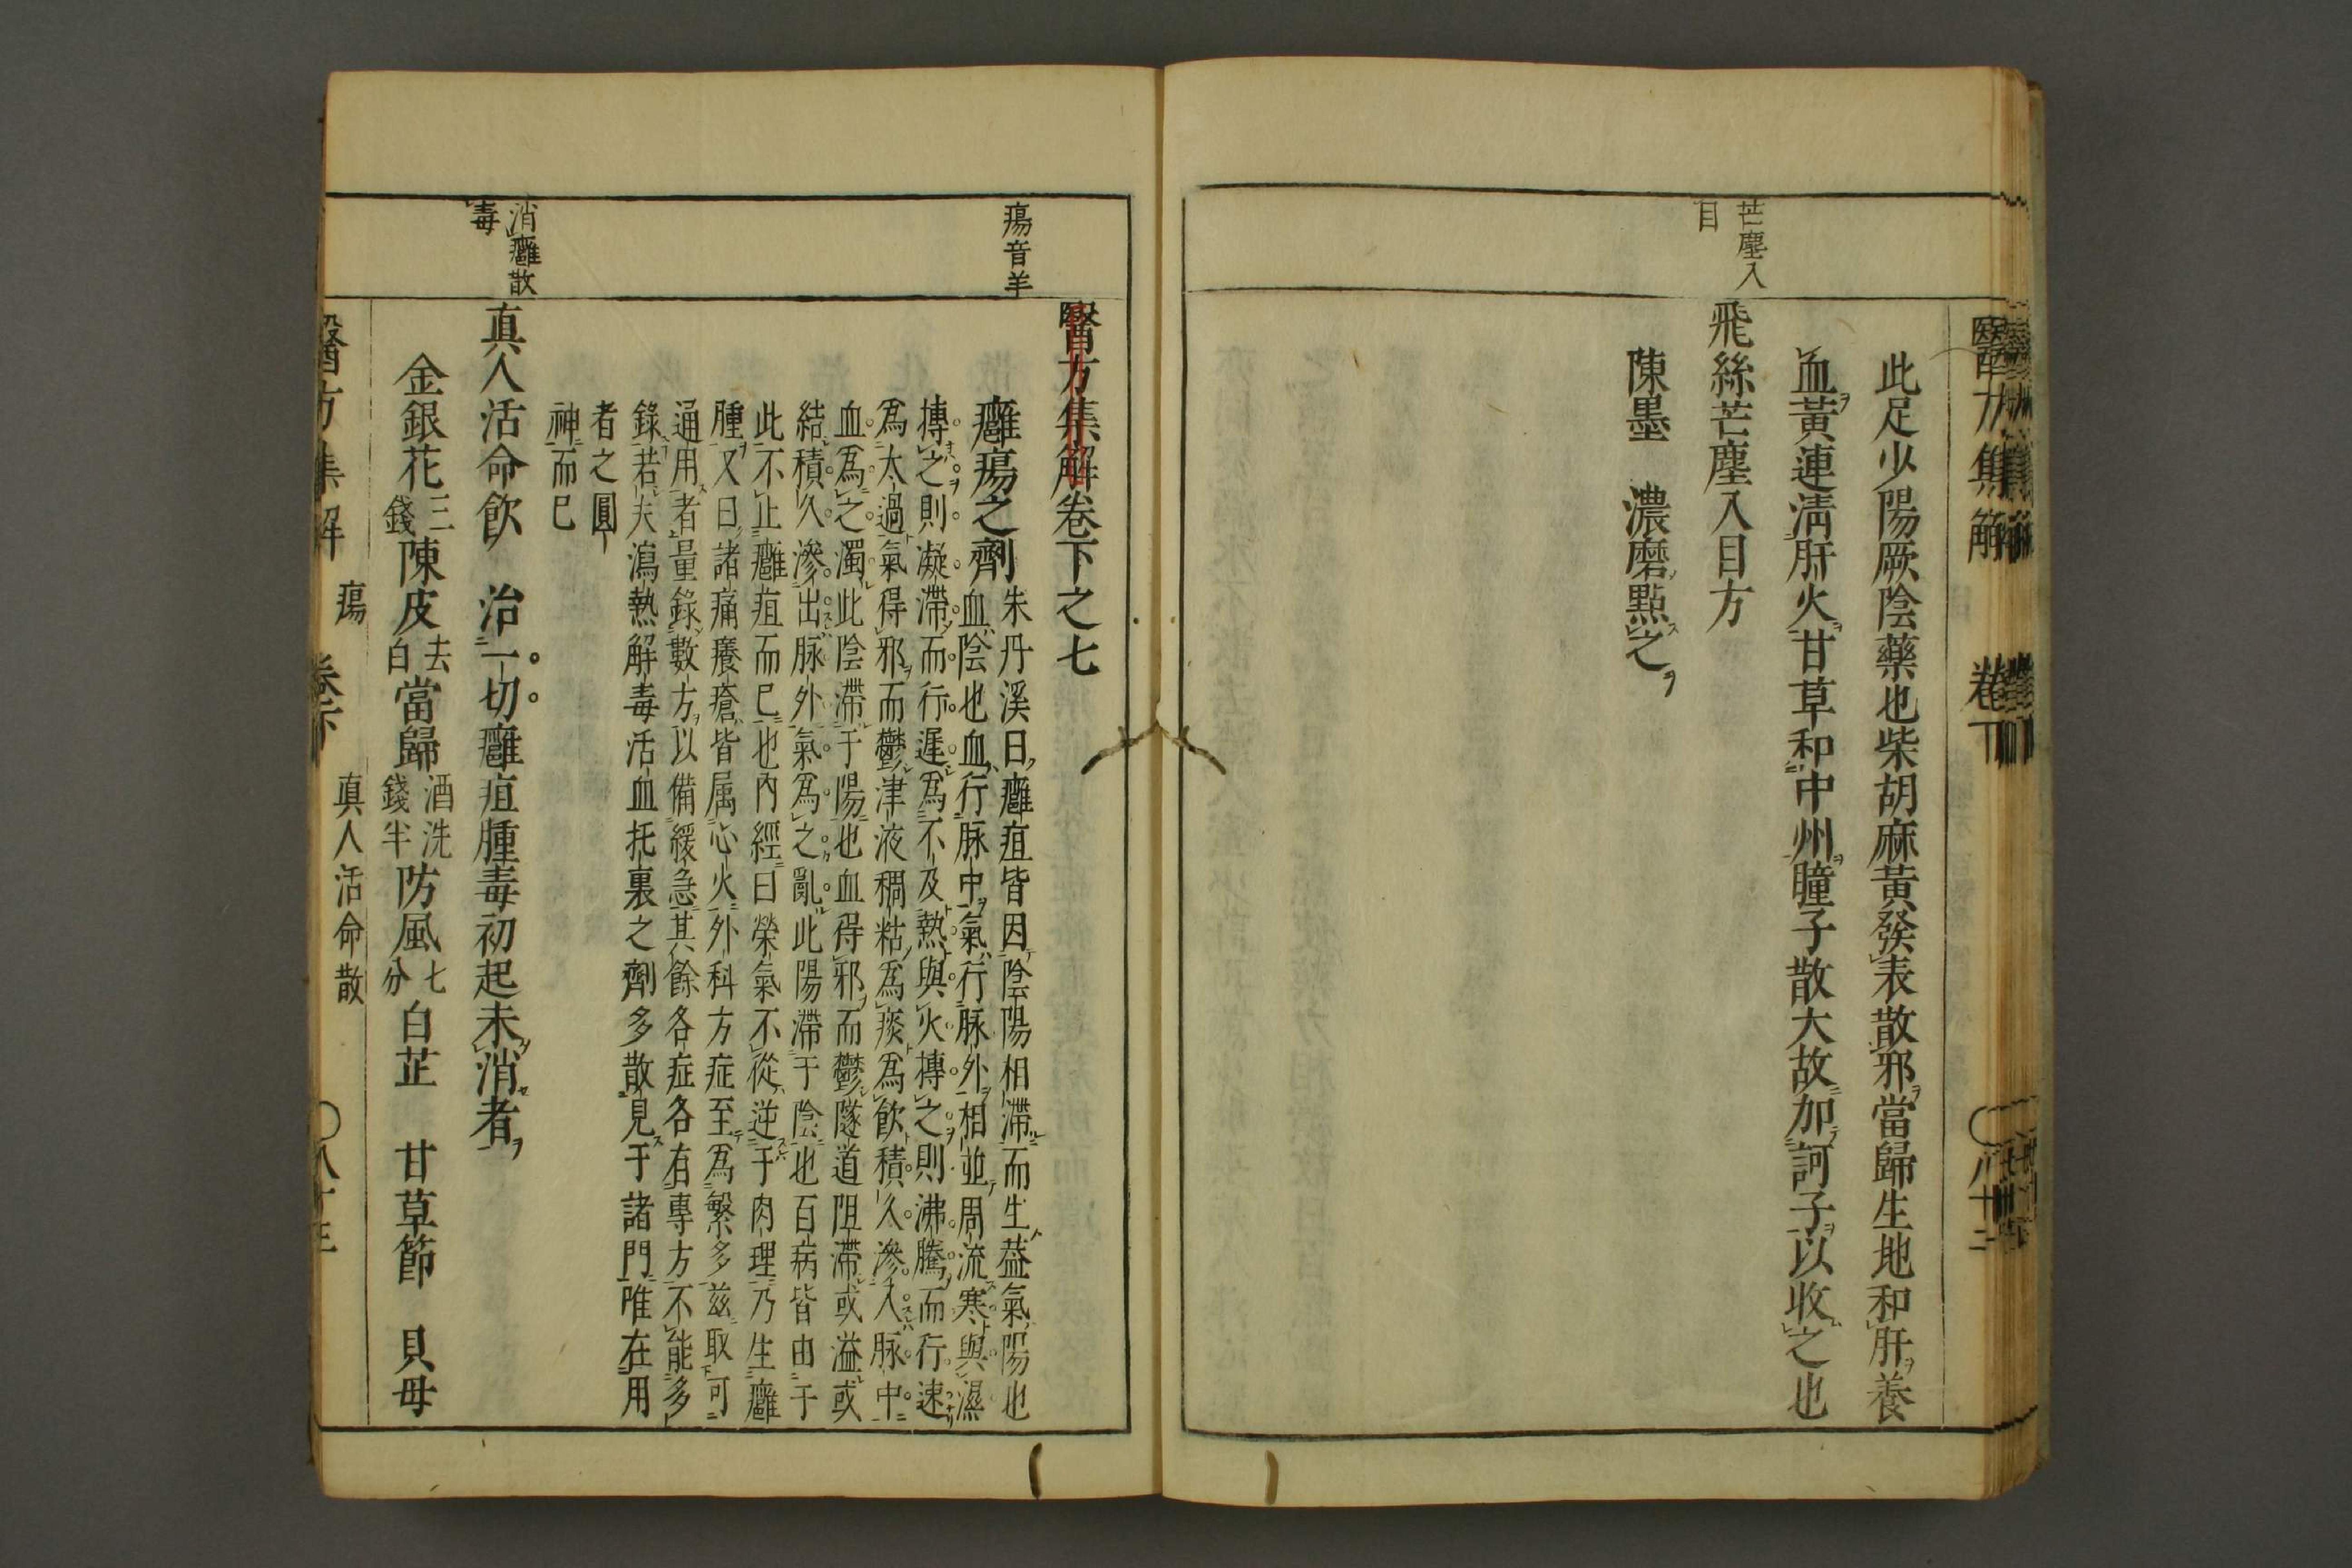 醫方集解 卷下 ○八十二
此足少陽厥陰藥也柴胡麻黃發表散邪當歸生地和肝養
血黃連淸肝火甘草和中州瞳子散大故加訶子以收之也
芒塵入
目
飛絲芒塵入目方
陳墨 濃磨點之
瘍音羊
醫方集解卷下之七
癰瘍之劑
朱丹溪曰癰疽皆因陰陽相滯而生葢氣陽也
血陰也血行脉中氣行脉外相並周流寒與濕
搏之則凝滯而行遲爲不及熱與火搏之則沸騰而行速
爲太過氣得邪而鬱津液稠粘爲痰爲飲積久滲入脉中
血爲之濁此陰滯于陽也血得邪而鬱隧道阻滯或溢或
結積久滲出脉外氣爲之亂此陽滯于陰也百病皆由于
此不止癰疽而已也內經曰榮氣不從逆于肉理乃生癰
腫又曰諸痛癢瘡皆属心火外科方症至爲繁多茲取可
通用者量錄數方以備緩急其餘各症各有專方不能多
錄若夫瀉熱解毒活血托裏之劑多散見于諸門唯在用
者之圓
神而已
消癰散
毒
真人活命飮 治一切癰疽腫毒初起未消者
金銀花三錢陳皮去白當歸酒洗錢半防風七分白芷 甘草節 貝母
醫方集解 瘍 卷下 真人活命散 ○八十三